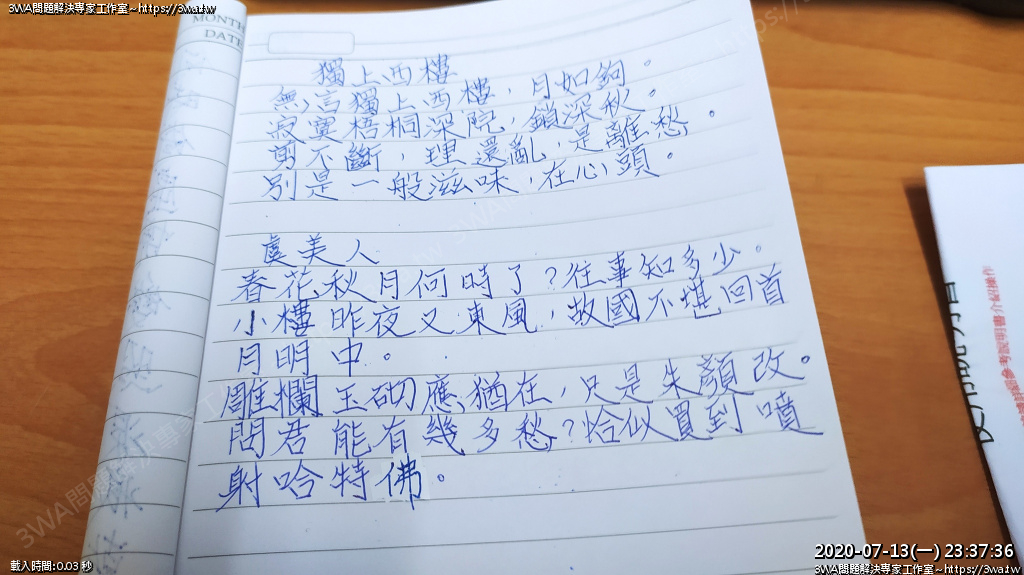 3WA問題解決專家工作室~https://3wa.tw
MONTH
DATE
獨上西樓
無言獨上西樓，月如鉤。
寂寞梧桐深院，鎖深秋。
剪不斷，理還亂，是離愁。
別是一般滋味，在心頭。
虞美人
春花秋月何時了？往事知多少。
小樓昨夜又東風，故國不堪回首
月明中。
雕欄玉砌應猶在，只是朱顏改。
問君能有幾多愁？恰似買到噴
射哈特佛。
載入時間:0.03 秒
2020-07-13(一) 23:37:36
3WA問題解決專家工作室~https://3wa.tw